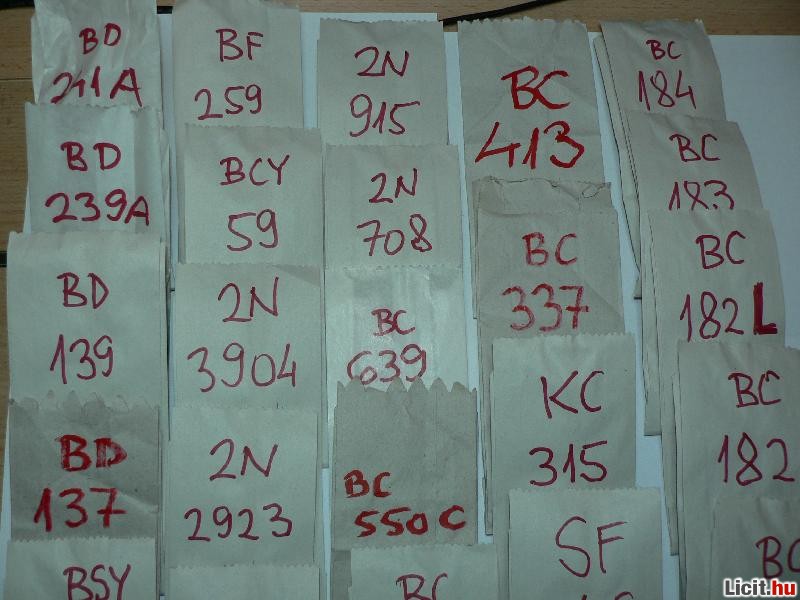 BD
241A
BD
239A
BD
139
BD
137
BSY
BF
259
BCY
59
2N
3904
2N
2923
2N
915
2N
708
BC
639
BC
550C
BC
BC
413
BC
337
KC
315
SF
BC
184
BC
183
BC
182L
BC
182
BC
Licit.hu